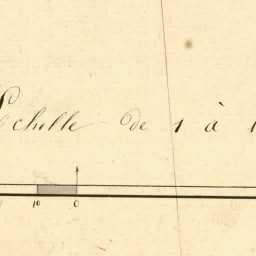 Echelle de 1 à 1
10 0